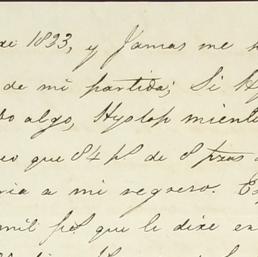 de 1833, y Jamas me
de mi partida; Si
to algo, Hyslop mient
eo que 84 ps de 8 pzas
ria a mi regreso.
mil ps que le dixe en